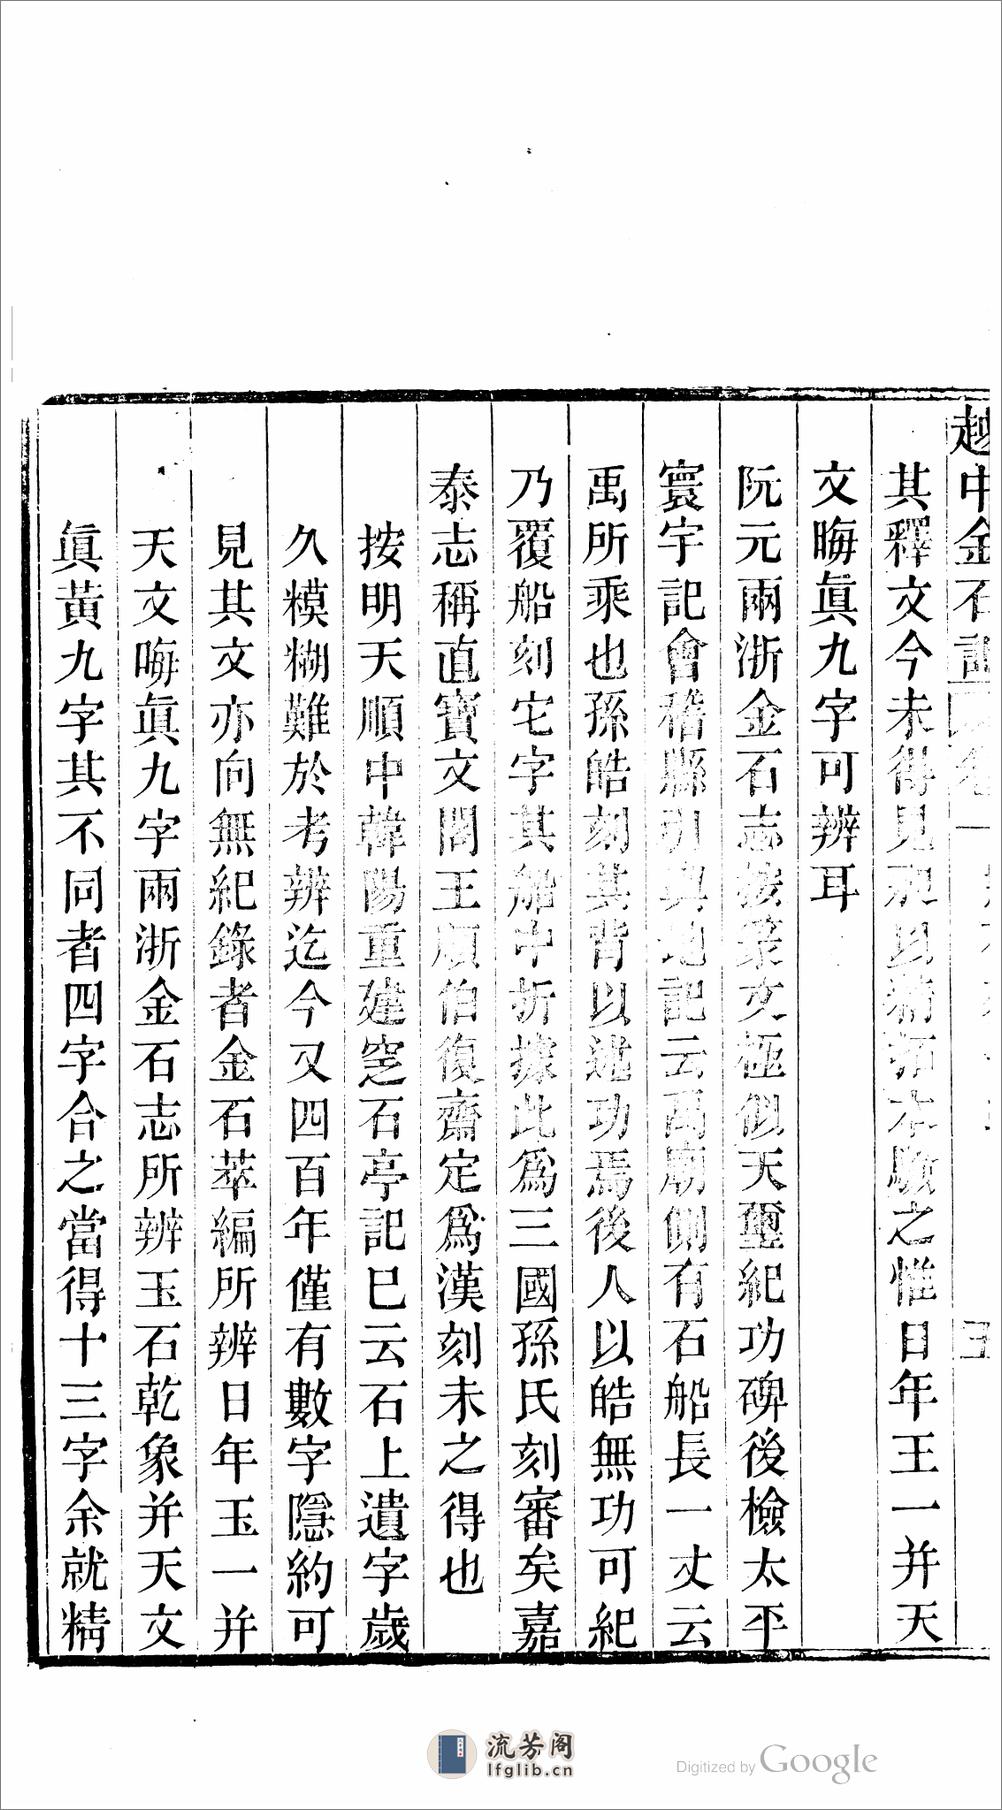 越中金石記 卷一 五
其釋文今未得見祝以精拓本驗之惟日年王一并天
文晦眞九字可辨耳
阮元兩浙金石志按篆文極似天璽紀功碑後檢太平
寰宇記會稽縣引輿地記云禹廟側有石船長一丈云
禹所乘也孫皓刻其背以述功焉後人以皓無功可紀
乃覆船刻它字其船中折據此爲三國孫氏刻審矣嘉
泰志稱直寶文閣王順伯復齋定爲漢刻未之得也
按明天順中韓陽重建窆石亭記已云石上遺字歲
久模糊難於考辨迄今又四百年僅有數字隱約可
見其文亦向無紀錄者金石萃編所辨日年玉一并
天文晦眞九字兩浙金石志所辨玉石乾象并天文
眞黃九字其不同者四字合之當得十三字余就精
流芳阁
lfglib.cn
Digitized by Google